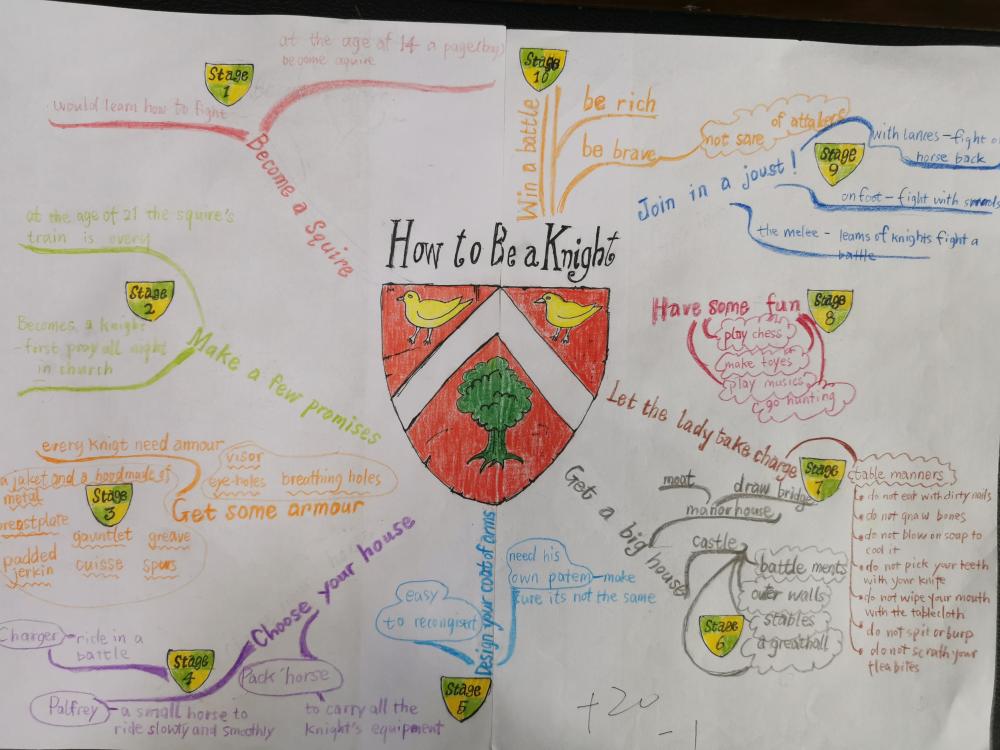 How to Be a Knight
Stage
1
Become a Squire
at the age of 14 a page(boy)
become aquire
would learn how to fight
Stage
2
Make a few promises
at the age of 21 the squire's
train is overy
Becomes a knight
-first pray all night
in church
Stage
3
Get some armour
every Knigt need armour
visor
eye-holes
breathing holes
a jaket and a hoodmade of
metal
breastplate
gauntlet
greave
padded
jerkin
cuisse
spurs
Stage
4
Choose your house
Charger - ride in a
battle
Palfrey - a small horse to
ride slowly and smoothly
Pack horse
to carry all the
knight's equipment
Stage
5
Design your coat of arms
easy
to recongisert
need his
own patern - make
sure its not the same
Stage
6
Get a big house
moat
draw bridge
manor house
castle
battle ments
outer walls
stables
a greathall
Stage
7
Let the lady take charge
table manners
do not eat with dirty nails
do not gnaw bones
do not blow on soap to
cool it
do not pick your teeth
with your knife
do not wipe your mouth
with the tablecloth
do not spit or burp
do not scrath your
flea bites
Stage
8
Have some fun
play chess
make toyes
play musics
go hunting
Stage
9
Join in a joust!
with lanres - fight on
horse back
on foot - fight with swords
the melee - teams of knights fight a
battle
Stage
10
Win a battle
be rich
be brave
not sare
of attakers
+20
-1